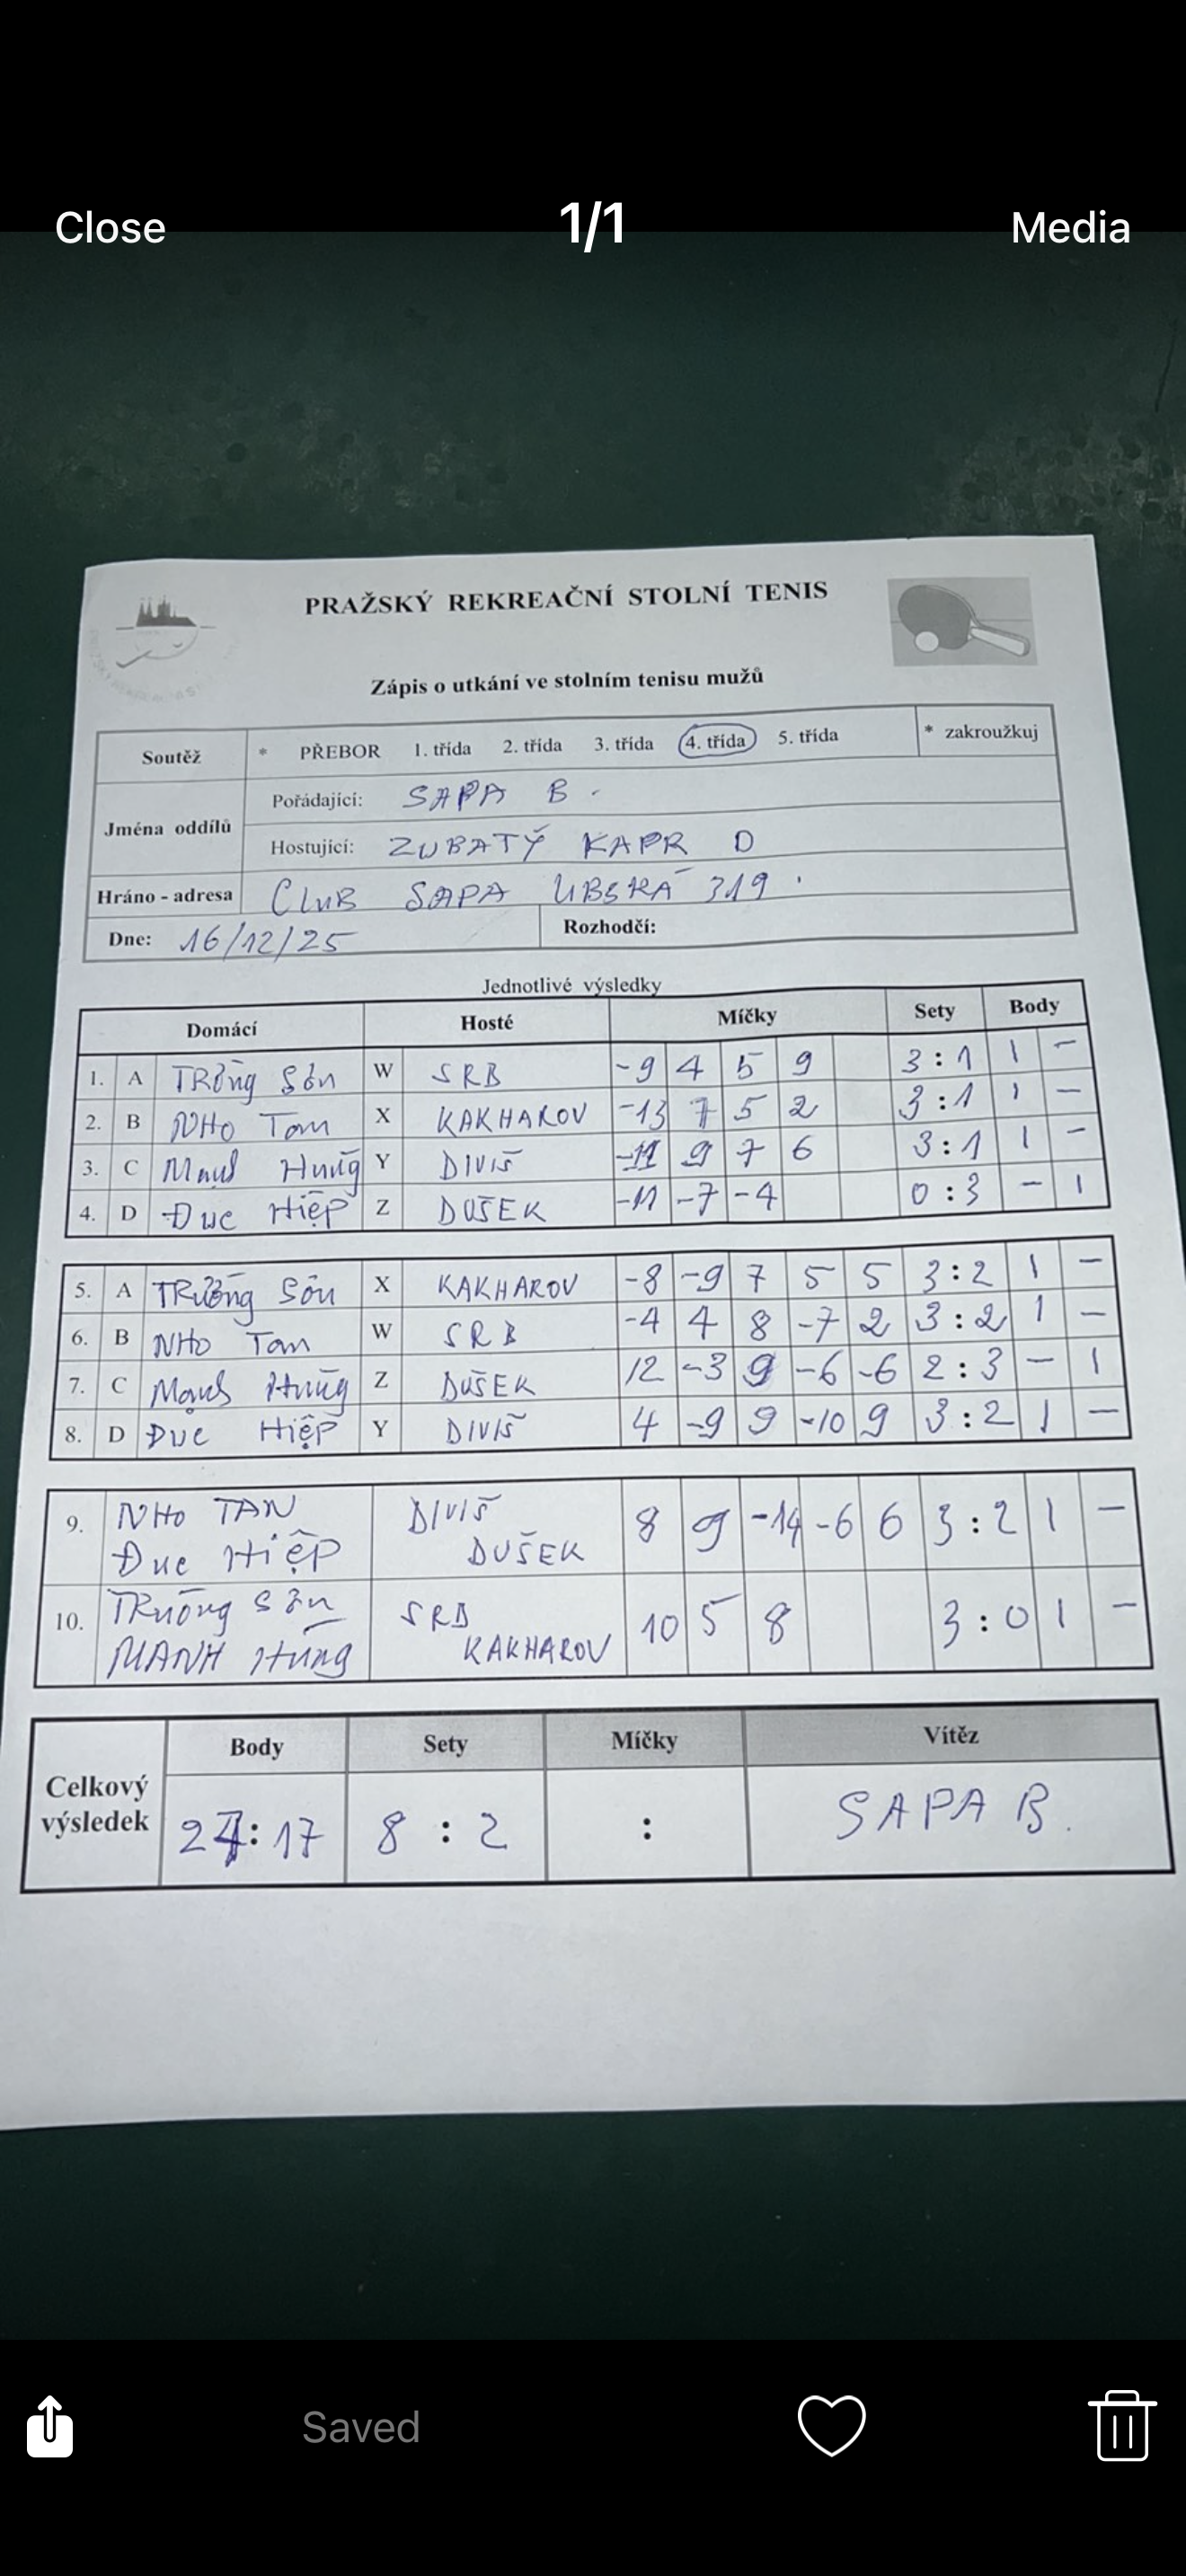 Close 1/1 Media
PRAŽSKÝ REKREAČNÍ STOLNÍ TENIS
Zápis o utkání ve stolním tenisu mužů
Soutěž * PŘEBOR 1. třída 2. třída 3. třída 4. třída 5. třída * zakroužkuj
Jména oddílů
Pořádající: SAPA B.
Hostující: ZUBATÝ KAPR D
Hráno - adresa CLUB SAPA LIBŠKÁ 319.
Dne: 16/12/25 Rozhodčí:
Jednotlivé výsledky
Domácí Hosté Míčky Sety Body
1. A TRờng Sơn W SRB -9 4 5 9 3:1 1 -
2. B NHO Tan X KAKHAROV -13 7 5 2 3:1 1 -
3. C Hung Y DIVIŠ -11 9 7 6 3:1 1 -
4. D Đuc Hiệp Z DUŠEK -11 -7 -4 0:3 - 1
5. A TRường Sơn X KAKHAROV -8 -9 7 5 5 3:2 1 -
6. B NHO Tan W SRB -4 4 8 -7 2 3:2 1 -
7. C Manh Hung Z DUŠEK 12 -3 9 -6 -6 2:3 - 1
8. D Đuc Hiệp Y DIVIŠ 4 -9 9 -10 9 3:2 1 -
9. NHO TAN DIVIŠ 8 9 -14 -6 6 3:2 1 -
Đuc Hiệp DUŠEK
10. TRuong Sơn SRB 10 5 8 3:0 1 -
MANH Hung KAKHAROV
Body Sety Míčky Vítěz
Celkový výsledek 27:17 8:2 : SAPA B.
Saved